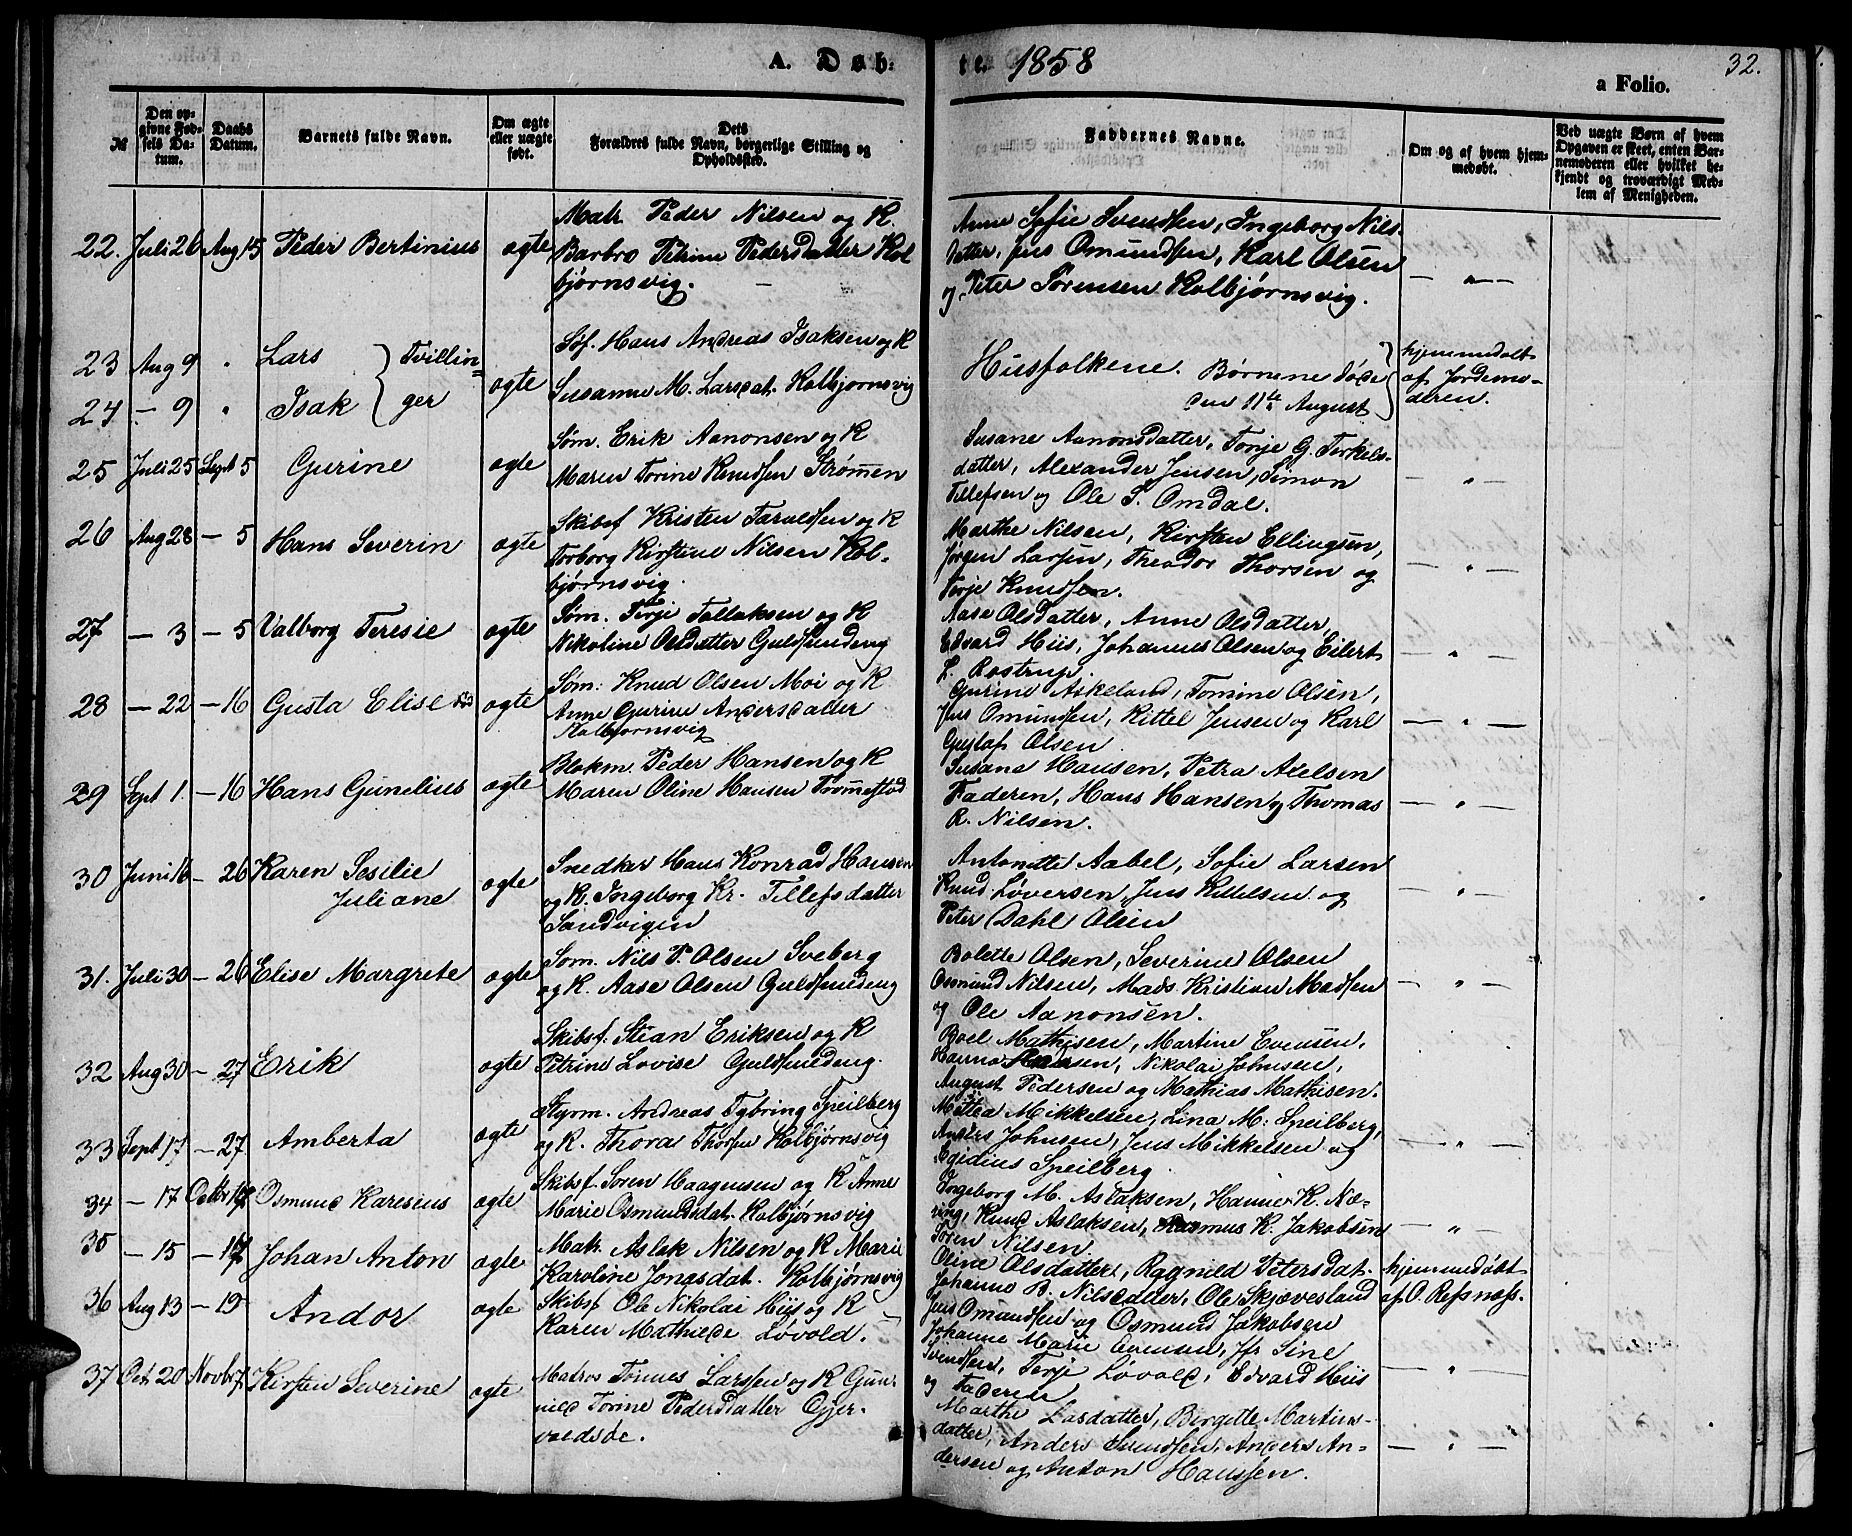 A. Døb-
te. 1858
32.
a Folio.
№
Den op-
givne Fød-
sels Da-
tum.
Daabs
Datum.
Barnets fulde Navn.
Om ægte
eller uægte
født.
Dets
Forældres fulde Navn, borgerlige Stilling og
Opholdssted.
Faddernes Navne.
Om og af hvem hjem-
medøbt.
Ved uægte Børn af hvem
Opgaven er skeet, enten Bar-
nemoderen eller hvilket be-
kjendt og troværdigt Med-
lem af Menigheden.
22. Juli 26 Aug 15 Peder Bertinius ægte
Matr. Peder Nilsen og K.
Barbro Petrine Pedersdatter Kol
bjørnsvig.
Anne Sofie Svendsen, Ingeborg Nils-
datter, Jens Omundsen, Karl Olsen
og Peter Sørensen Kolbjørnsvig.
— " —
23 Aug 9 " Lars Tvillin=
24 — 9 " Isak ger ægte
Skf. Hans Andreas Isaksen og K
Susanne M. Larsdat. Kolbjørnsvig
Husfolkene. Børnene døde
den 11te August
hjemmedøbt
af Jordemo-
deren.
25 Juli 25 Sept 5 Gurine ægte
Søm. Erik Aanonsen og K
Maren Torine Knudsen Strømen
Susane Aanonsdatter, Torje G. Terkels-
datter, Alexander Jensen, Simon
Tellefsen og Ole S. Omdal.
— " —
26 Aug 28 — 5 Hans Severin ægte
Skibsf Kristen Taraldsen og K
Torborg Kirstine Nilsen Kol-
bjørnsvig.
Marthe Nilsen, Kirsten Ellingsen,
Jørgen Larsen, Theodor Thorsen og
Terje Knudsen.
— " —
27 — 3 — 5 Valborg Teresie ægte
Søm. Terje Tallaksen og K
Nikoline Olsdatter Guldsmedeng
Aase Olsdatter, Anne Olsdatter,
Edvard Hiis, Johannes Olsen og Eilert
L. Rostrup.
— " —
28 — 22 — 16 Gusta Elise ægte
Søm: Knud Olsen Moi og K
Anne Gurine Andersdatter
Kolbjørnsvig
Gurine Askeland, Tomine Olsen,
Jens Omundsen, Kittel Jensen og Karl
Gustaf Olsen
— " —
29 Sept 1. — 16 Hans Gunelius ægte
Blokm. Peder Hansen og K
Maren Oline Hansen Tromøstad
Susane Hansen, Petra Axelsen
Faderen, Hans Hansen og Thomas
R. Nilsen.
— " —
30 Juni 16 — 26 Karen Sesilie
Juliane ægte
Snedker Hans Konrad Hansen
og K. Ingeborg Kr. Tellefsdatter
Sandvigen
Antonette Aabel, Sofie Larsen
Knud Løversen, Jens Kittelsen og
Peter Dahl Olsen
— " —
31. Juli 30 — 26 Elise Margrete ægte
Søm. Nils P. Olsen Sveberg
og K. Aase Olsen Guldsmedeng
Bolette Olsen, Severine Olsen
Osmund Nilsen, Mads Kristian Madsen
og Ole Aanonsen.
— " —
32 Aug 30 — 27 Erik ægte
Skibsf. Stian Eriksen og K
Petrine Lovise Guldsmedeng.
Boel Mathisen, Martine Evensen,
Hanna Nikolai Johnsen,
August Pedersen og Mathias Mathisen.
33 Sept 17 — 27 Amberta ægte
Styrm. Andreas Tybring Speilberg
og K. Thora Thorsen Kolbjørnsvig
Mettea Mikkelsen, Lina M: Speilberg,
Anders Johnsen, Jens Mikkelsen og
Egidius Speilberg
— " —
34 — 17 Octbr 17 Osmund Karesius ægte
Skibsf. Søren Haagensen og K Anne
Marie Osmundsdat. Kolbjørnsvig
Ingeborg M. Aslaksen, Hanne K. Næ-
ring, Knud Aslaksen, Rasmus K. Jakobsen
Søren Nilsen.
— " —
35 — 15 — 17 Johan Anton ægte
Matr. Aslak Nilsen og K Marie
Karoline Jonasdat. Kolbjørnsvig
Oline Olsdatter, Ragnild Petersdat.
Johanne B. Nilsdatter, Ole Skjævesland
Jens Omundsen og Osmund Jakobsen
hjemmedøbt
af O. Refsnæs.
36 Aug 13 — 19 Andor ægte
Skibsf Ole Nikolai Hiis og K
Karen Mathilde Løvold.
Johanne Marie Evensen, Jfr Sine
Svendsen, Terje Løvold, Edvard Hiis
og Faderen
— " —
37 Oct 20 Novbr 7 Kirsten Severine ægte
Matros Tønnes Larssen og K Gun-
nild Torine Pedersdatter Gjer-
voldsø.
Marthe Lasdatter, Birgitte Martins-
datter, Anders Svendsen, Anders An-
dersen og Anton Hanssen.
— " —